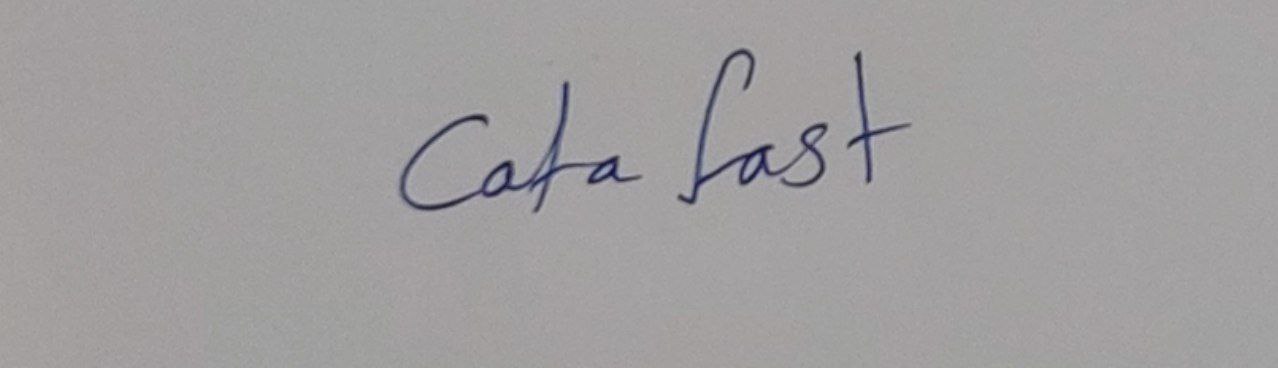 Cata fast